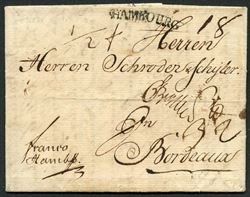 HAMBOURG
Herren 18
Herren Schroder & Schyler
In
Bordeaux
franco
Hambg.